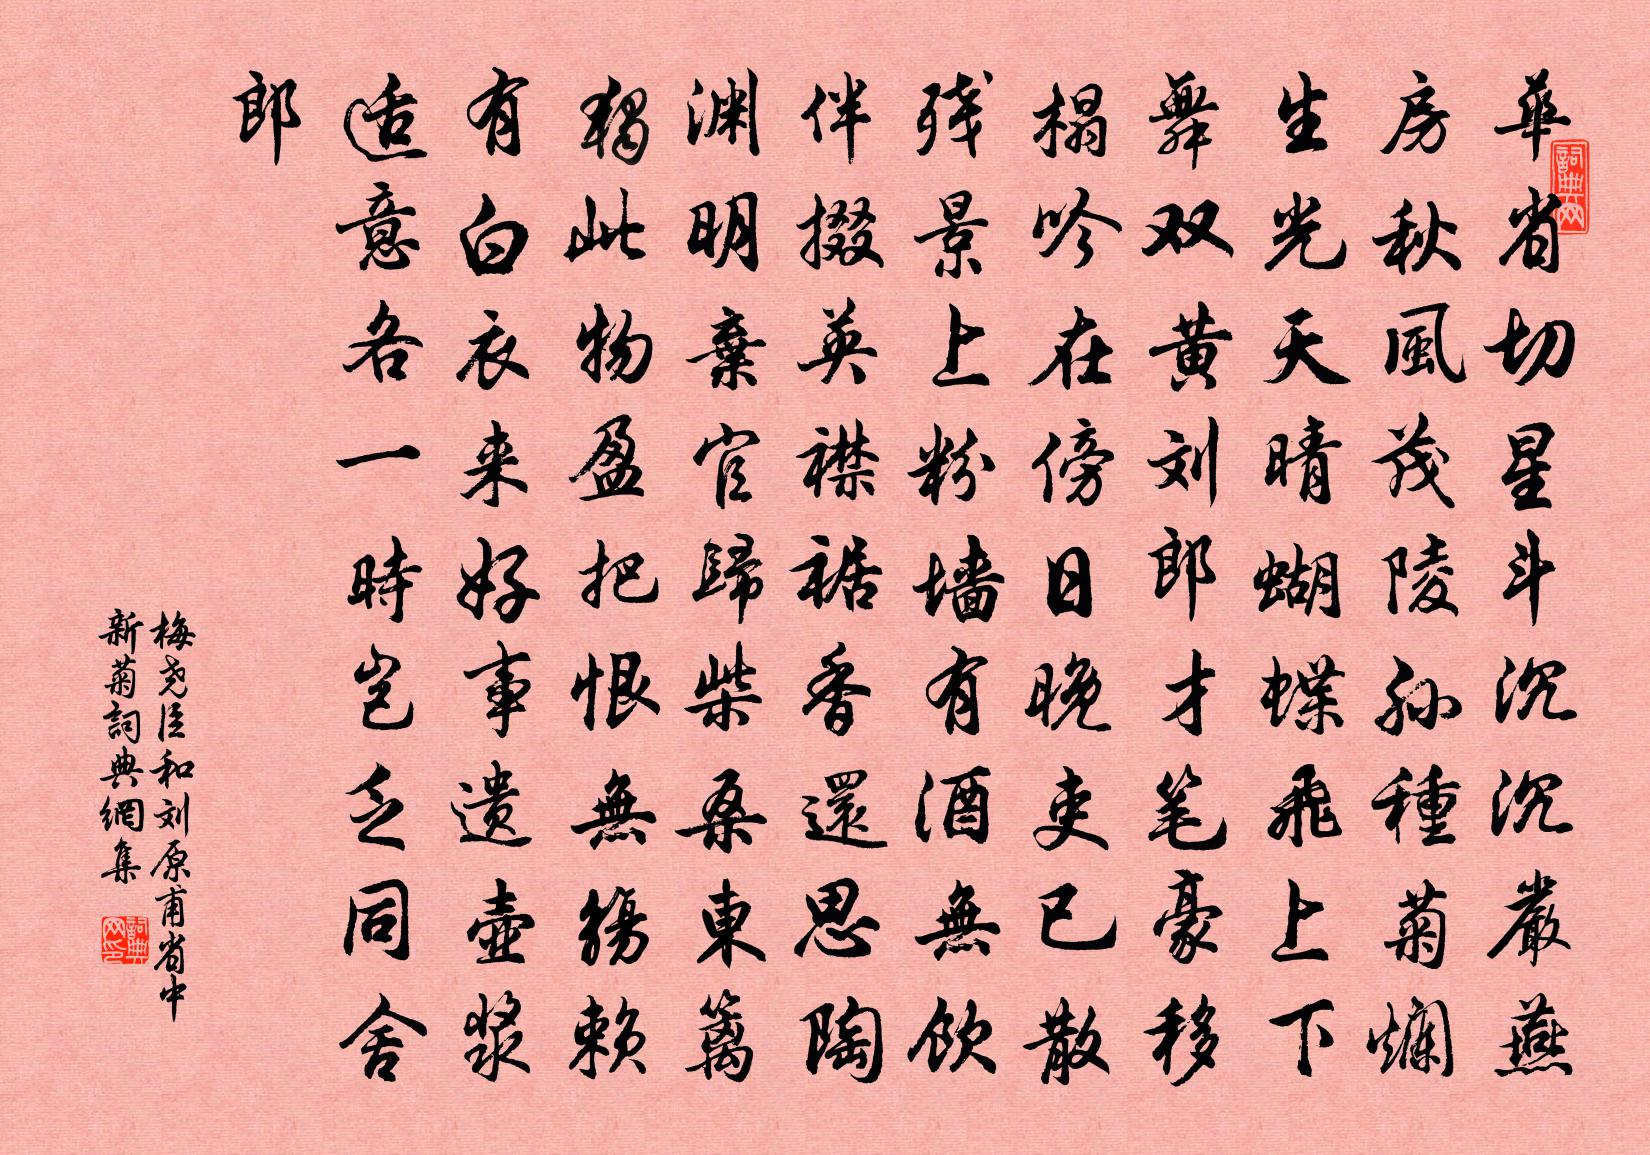 華省切星斗沉沉嚴燕
房秋風茂陵孫種菊爛
生光天晴蝴蝶飛上下
舞双黄刘郎才笔豪移
榻吟在傍日晚吏已散
残景上粉墙有酒無飲
伴掇英襟裾香還思陶
渊明棄官歸柴桑東篱
獨此物盈把恨無觴赖
有白衣来好事遗壺浆
适意各一時岂乏同舍
郎
梅尧臣和刘原甫省中
新菊詞典網集
詞典网
詞典网印